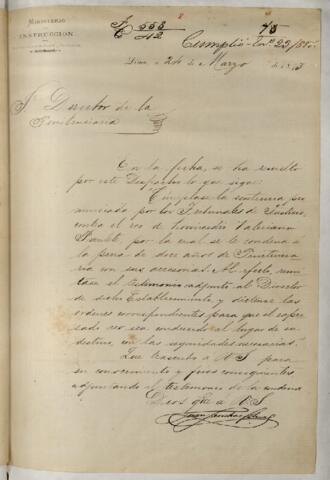 MINISTERIO
DE
INSTRUCCION
F 553
C 112
75
Cumplió En.º 25/
Lima, á 24 de Marzo de 18
Sr. Director de la
Penitenciaria
En la fecha, se ha resuelto
por este Despacho lo que sigue:
"Cúmplase la sentencia pro
nunciada por los Tribunales de Justicia,
contra el reo de homicidio Valeriano
por la cual se le condena á
la pena de doce años de Penitencia
ria con sus accesorias. Al efecto, remí
tase el testimonio adjunto al Director
de dicho Establecimiento, y díctense las
ordenes correspondientes para que el
sado reo sea conducido al lugar de su
destino con las seguridades necesarias."
Que trascribo á US para
su conocimiento y fines consiguientes
adjuntando el testimonio de la condena
Dios gue á U.S.